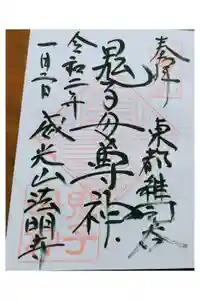 奉拝
東都雜司谷
鬼子母尊神
令和二年
一月二日
威光山法明寺